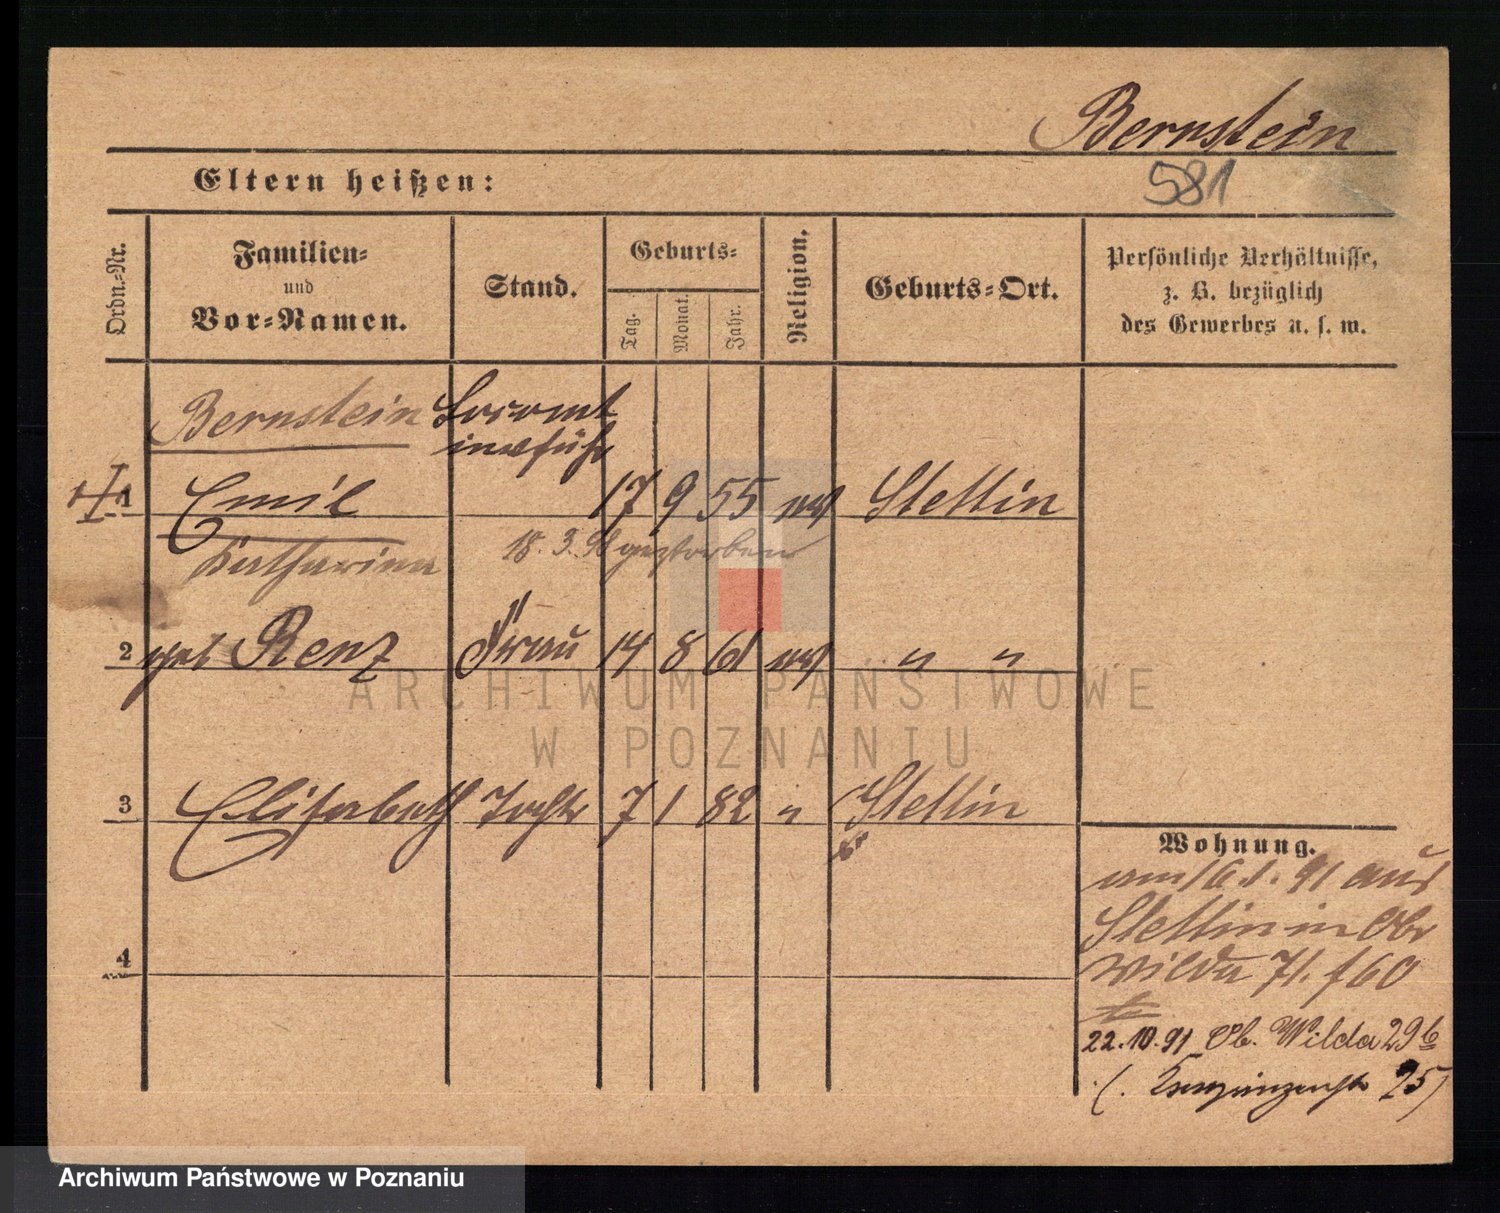 Bernstein
581
Eltern heißen:
Ordn.-Nr.
Familien-
und
Vor-Namen.
Stand.
Geburts-
Tag.
Monat.
Jahr.
Religion.
Geburts-Ort.
Persönliche Verhältnisse,
z. B. bezüglich
des Gewerbes u. s. w.
Bernstein Locomt
führ
1 Emil 17 9 55 Stettin
Katharina 18. 3. gestorben
2 geb Renz Frau 14 8 61 " "
ARCHIWUM PAŃSTWOWE
W POZNANIU
3 Elisabeth Tochtr 7 1 82 " Stettin
Wohnung.
am 16.1.91 aus
Stettin in Obr
Wilda 71. f 60
4
22.10.91 Ob. Wilda 29b
(Kronprinzenstr 25)
Archiwum Państwowe w Poznaniu